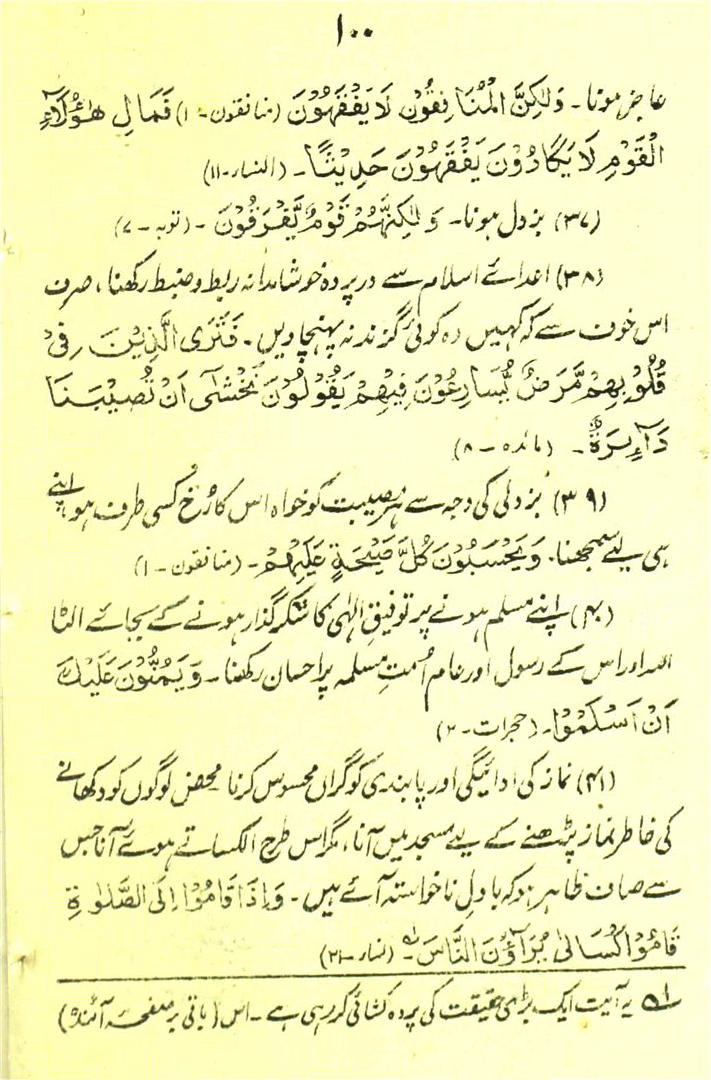 ۱۰۰
عاجز ہونا۔ وَلٰکِنَّ الْمُنَافِقُوْن لَا یَفْقَہُوْنَ (منافقون-۱) فَمَالِ ھٰؤُلَآءِ
الْقَوْمِ لَا یَکَادُوْنَ یَفْقَہُوْنَ حَدِیْثًا۔ (النساء-۱۱)
(۳۷) بزدل ہونا۔ وَلٰکِنَّہُمْ قَوْمٌ یَّفْرَقُوْنَ ۔ (توبہ-۷)
(۳۸) اعدائے اسلام سے درپردہ خوشامدانہ ربط وضبط رکھنا، صرف
اس خوف سے کہ کہیں وہ کوئی گزند نہ پہنچا دیں۔ فَتَرَی الَّذِیْنَ فِیْ
قُلُوْبِہِمْ مَّرَضٌ یُّسَارِعُوْنَ فِیْہِمْ یَقُوْلُوْنَ نَخْشٰٓی اَنْ تُصِیْبَنَا
دَآئِرَۃٌ۔ (مائدہ-۸)
(۳۹) بزدلی کی وجہ سے ہر مصیبت کو خواہ اس کا رُخ کسی طرف ہو اپنے
ہی لیے سمجھنا۔ وَیَحْسَبُوْنَ کُلَّ صَیْحَۃٍ عَلَیْہِمْ۔ (منافقون-۱)
(۴۰) اپنے مسلم ہونے پر توفیقِ الٰہی کا شکر گذار ہونے کے بجائے الٹا
اللہ اور اس کے رسول اور عام اُمتِ مسلمہ پر احسان رکھنا۔ وَیَمُنُّوْنَ عَلَیْکَ
اَنْ اَسْلَمُوْا۔ (حجرات-۲)
(۴۱) نماز کی ادائیگی اور پابندی کو گراں محسوس کرنا محض لوگوں کو دکھانے
کی خاطر نماز پڑھنے کے لیے مسجد میں آنا، مگر اس طرح الکساتے ہوئے آنا جس
سے صاف ظاہر ہو کہ بادلِ ناخواستہ آئے ہیں۔ وَاِذَا قَامُوْا اِلَی الصَّلٰوۃِ
قَامُوْا کُسَالٰی یُرَآؤُنَ النَّاسَ۔ ؎۱ (نساء-۲۱)
؎۱ یہ آیت ایک بڑی حقیقت کی پردہ کشائی کر رہی ہے۔ اس (باقی بر صفحہ آئندہ)